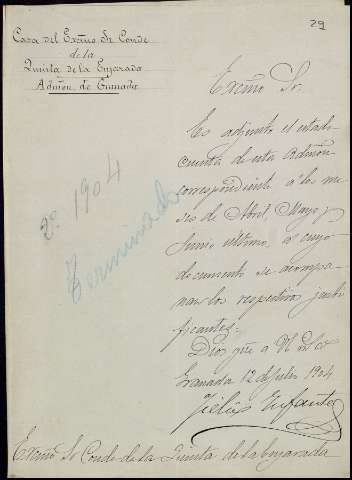 29
Casa del Excmo Sr Conde
de la
Quinta de la Enjarada
Admón. de Granada
Excmo Sr.
Es adjunto el estado
cuenta de esta Admón
correspondiente á los me
ses de Abril Mayo y
Junio último, a cuyo
documento se acompa
nan los respectivos justi
ficantes.
Dios gue a V.E.
Granada 12 de Julio 1904
Infante
2º 1904
Terminado
Excmo Sr Conde de la Quinta de la Enjarada